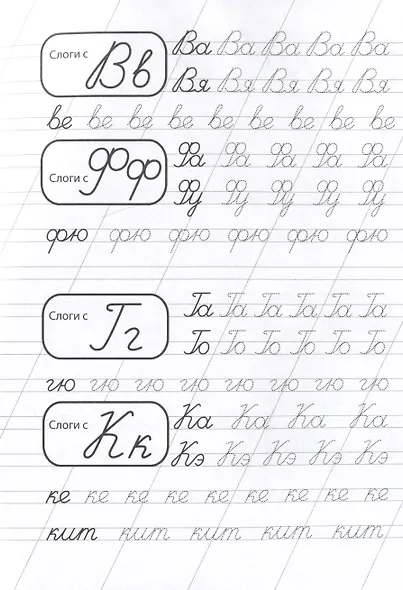 Слоги с Вв Ва Ва Ва Ва Ва
Вя Вя Вя Вя Вя
ве ве ве ве ве ве ве ве ве
Слоги с Фф Фа Фа Фа Фа Фа
Фу Фу Фу Фу Фу
фю фю фю фю фю фю
Слоги с Гг Га Га Га Га Га Га
Го Го Го Го Го Го
гю гю гю гю гю гю гю гю
Слоги с Кк Ка Ка Ка Ка
Кэ Кэ Кэ Кэ Кэ
ке ке ке ке ке ке ке ке ке
кит кит кит кит кит